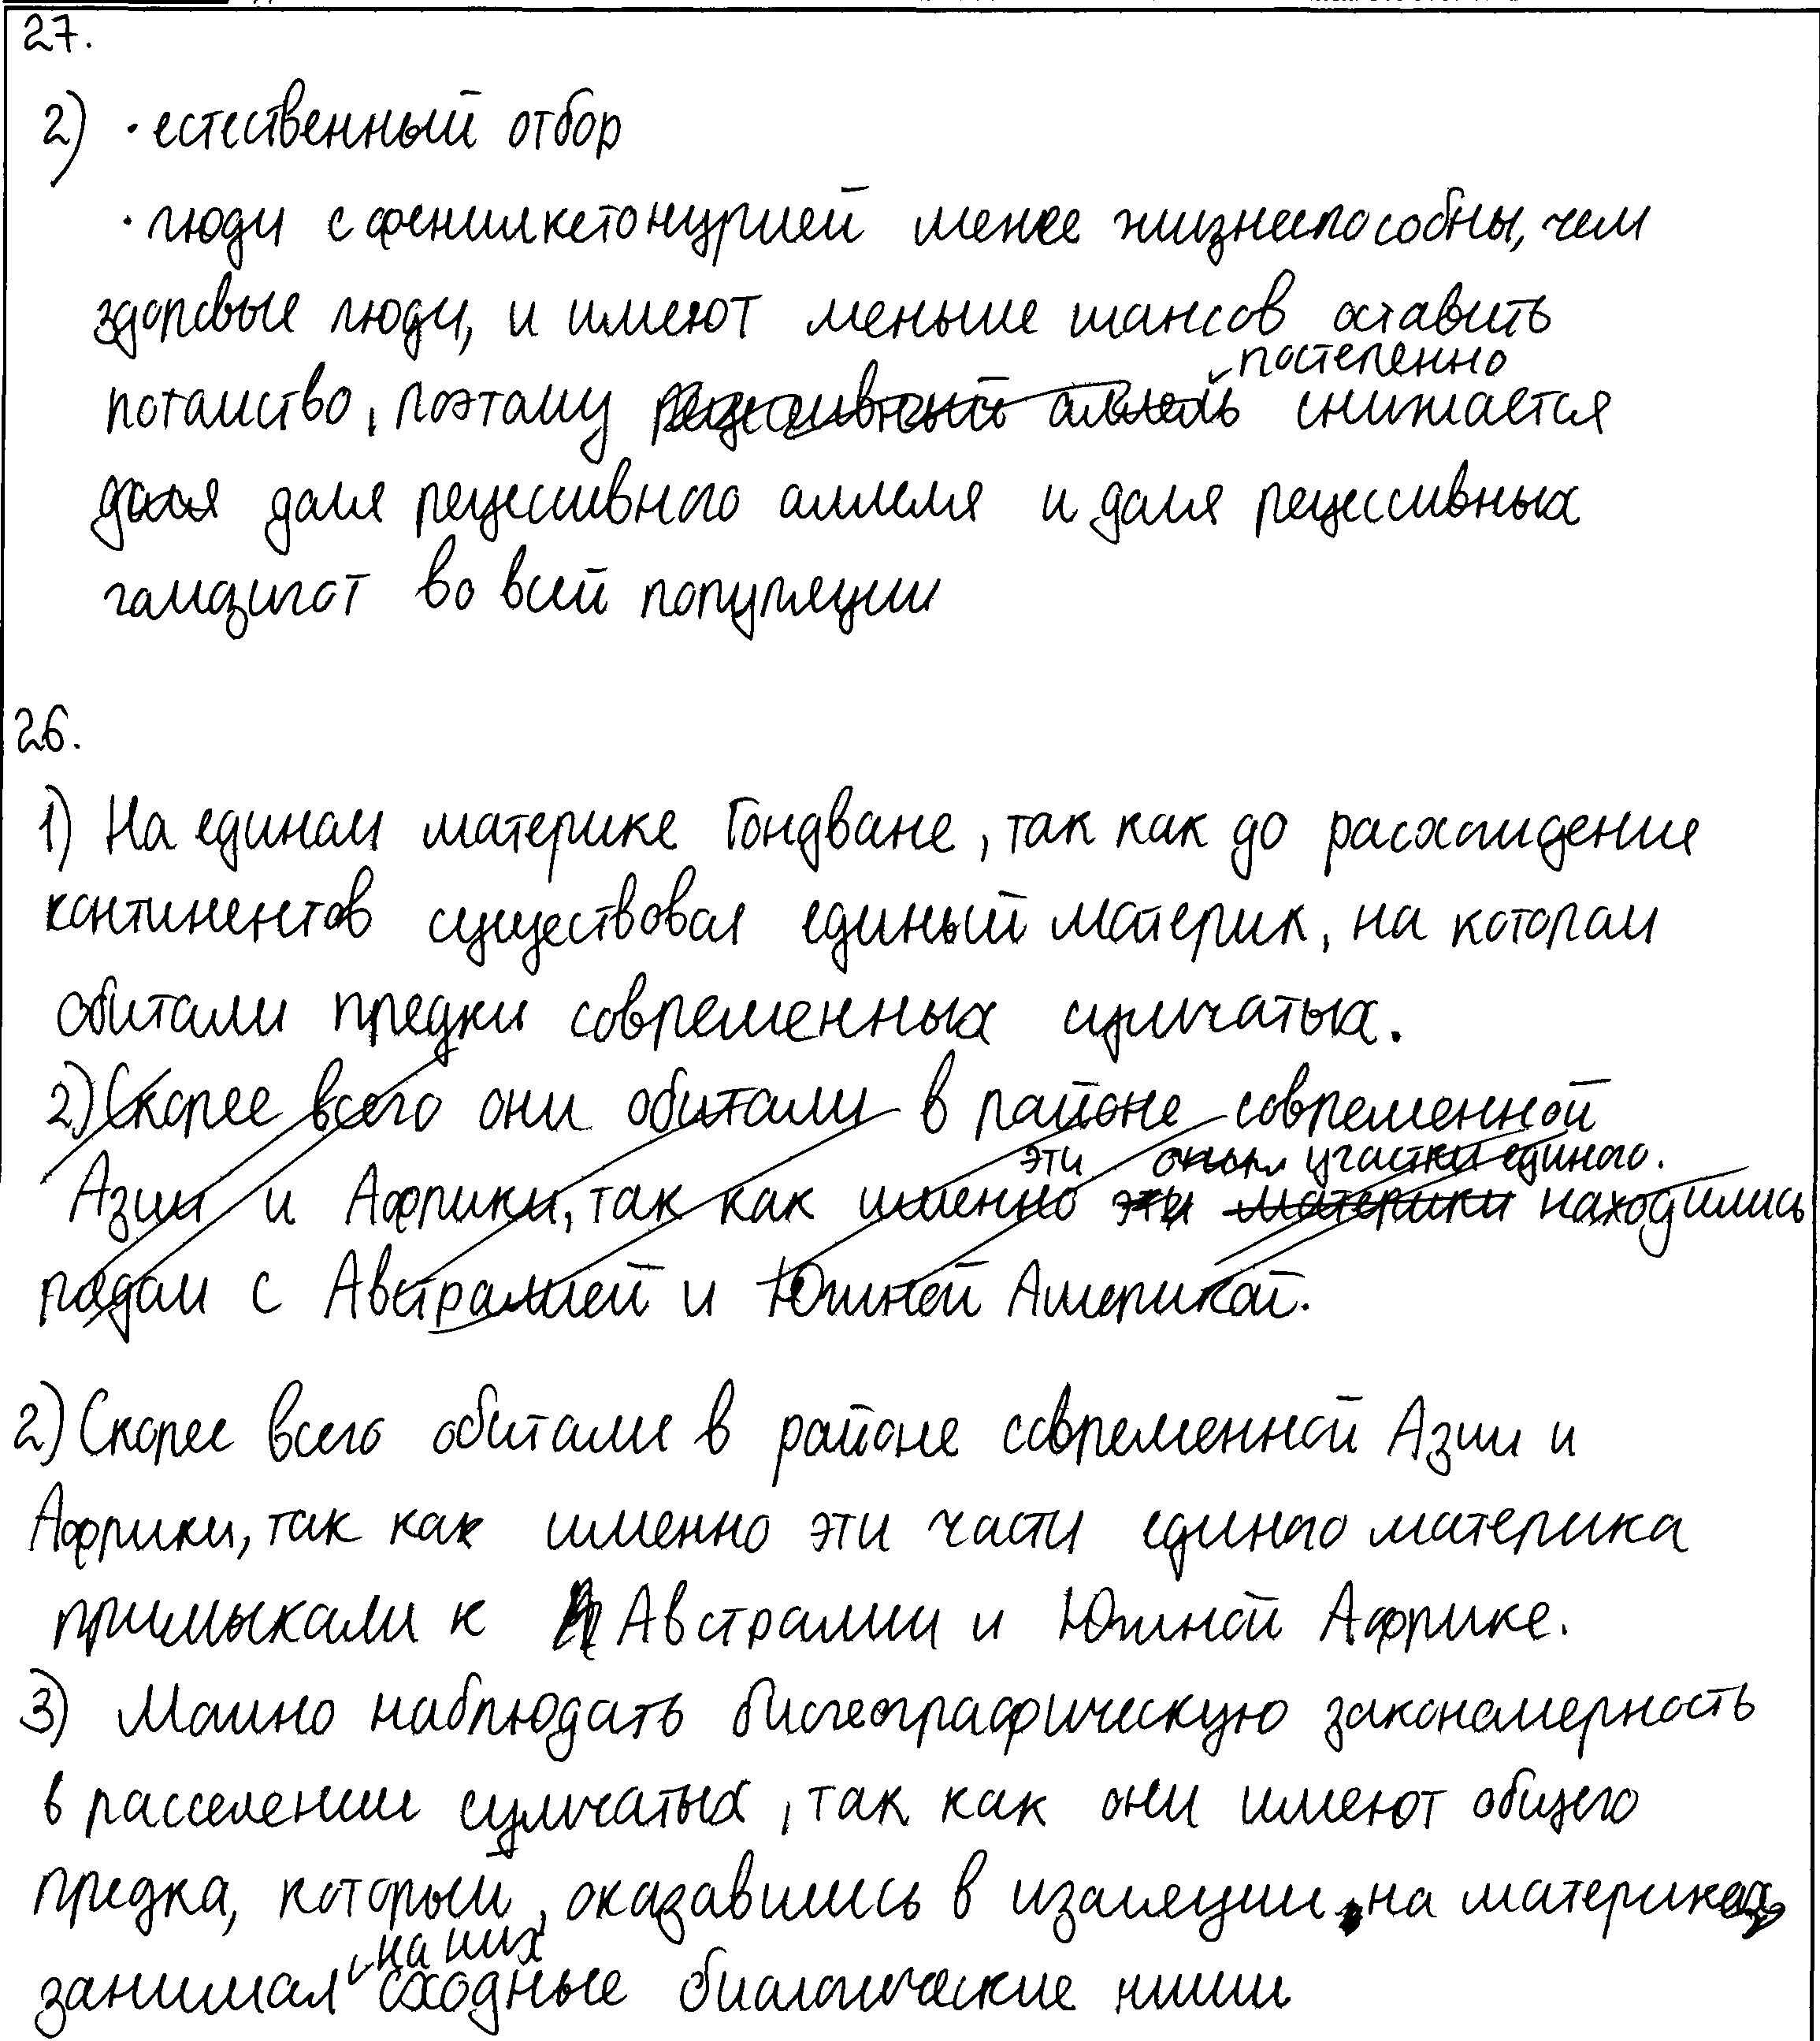 27.
2) · естественный отбор
· люди с фенилкетонурией менее жизнеспособны, чем
здоровые люди, и имеют меньше шансов оставить
постепенно
потомство, поэтому рецессивный аллель снижается
доля доля рецессивного аллеля и доля рецессивных
гомозигот во всей популяции
26.
1) На едином материке Гондване, так как до расхождения
континентов существовал единый материк, на котором
обитали предки современных сумчатых.
2) Скорее всего они обитали в районе современной
эти участки единого.
Азии и Африки, так как именно эти материки находились
рядом с Австралией и Южной Америкой.
2) Скорее всего обитали в районе современной Азии и
Африки, так как именно эти части единого материка
примыкали к Австралии и Южной Африке.
3) Можно наблюдать биогеографическую закономерность
в расселении сумчатых, так как они имеют общего
предка, который, оказавшись в изоляции на материках,
на них
занимал сходные биологические ниши